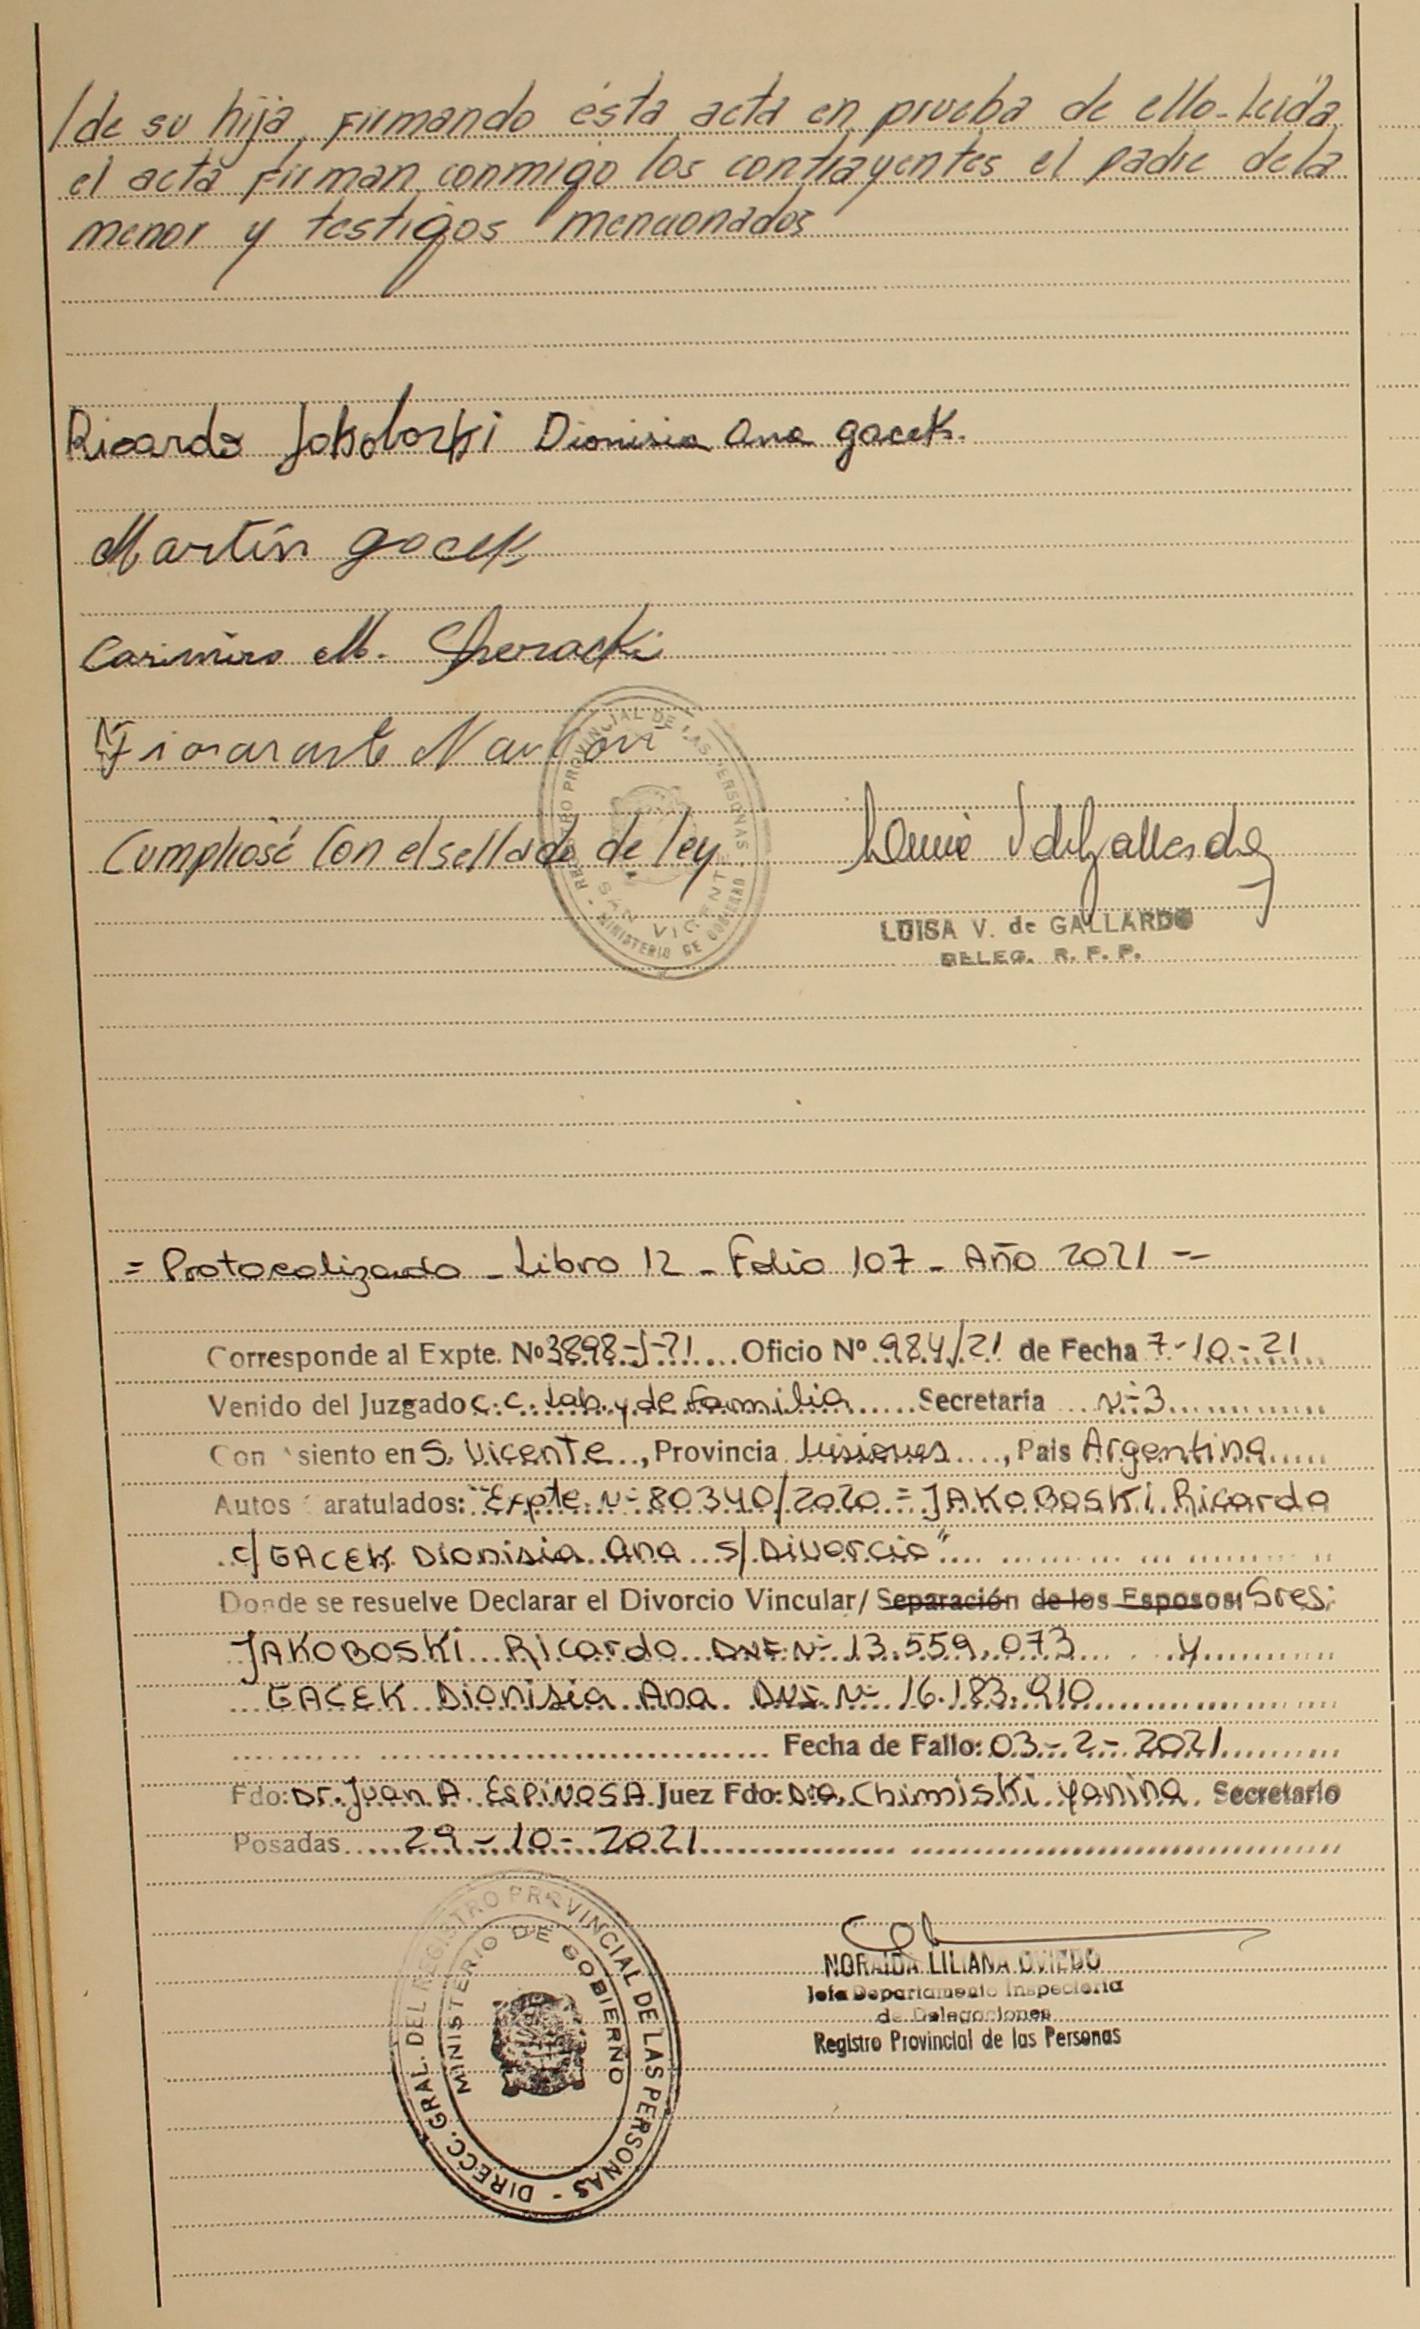 /de su hija, firmando ésta acta en prueba de ello-Leída
el acta firman conmigo los contrayentes el padre de la
menor y testigos mencionados
Ricardo Jakoboski Dionisia Ana Gacek.
Martín Gacek
Casimiro M.
REGISTRO PROVINCIAL DE LAS PERSONAS
SAN VICENTE
- MINISTERIO DE GOBIERNO
Cumpliosé Con el sellado de ley
LUISA V. de GALLARDO
DELEG. R. P. P.
= Protocalizado - Libro 12 - Folio 107 - Año 2021 --
Corresponde al Expte. Nº 3898-J-21 Oficio Nº 984/21 de Fecha 7-10-21
Venido del Juzgado C. C. Lab. y de Familia Secretaría Nº 3
Con siento en S. Vicente, Provincia Misiones, País Argentina
Autos aratulados: "Expte. Nº 80340/2020 = JAKOBOSKI Ricardo
c/ GACEK Dionisia Ana s/ Divorcio"
Donde se resuelve Declarar el Divorcio Vincular/ Separación de los Esposos: Sres:
JAKOBOSKI Ricardo DNI Nº 13.559.073 y
GACEK Dionisia Ana DNI Nº 16.183.910
Fecha de Fallo: 03-2-2021
Fdo: Dr. Juan A. ESPINOSA Juez Fdo: Dra. Chimiski Yanina. Secretario
Posadas 29-10-2021
DIRECC. GRAL. DEL REGISTRO PROVINCIAL DE LAS PERSONAS -
MINISTERIO DE GOBIERNO
NORAIDA LILIANA OVIEDO
Jefa Departamento Inspectoria
de Delegaciones
Registro Provincial de las Personas